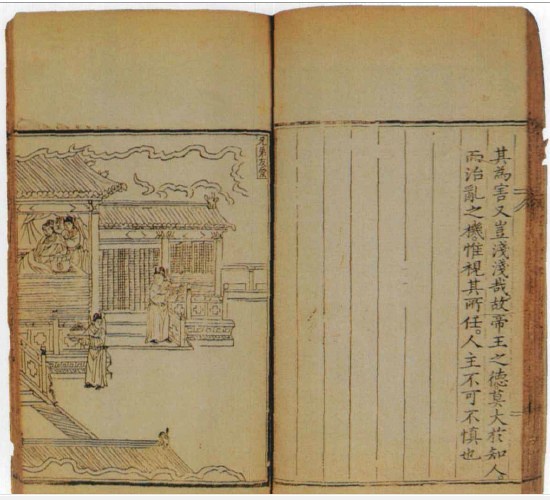 其為害又豈淺淺哉故帝王之德莫大於知人。
而治亂之機惟視其所任。人主不可不慎也
兄弟友愛